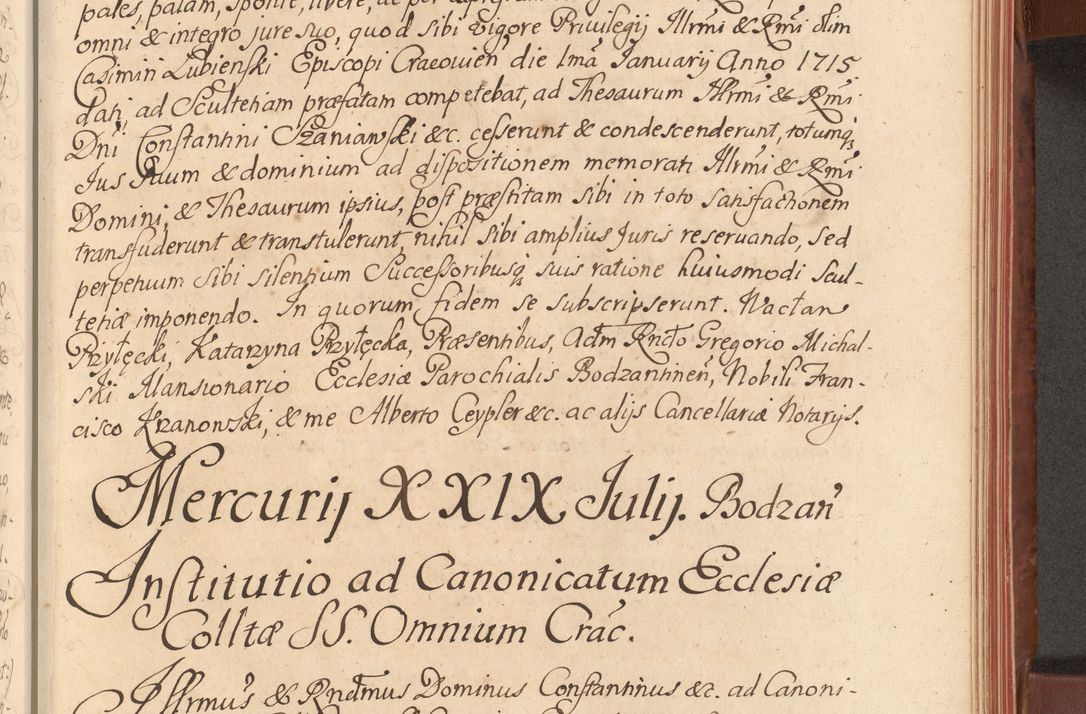 pales, palam, sponte, libere, ac per expressum
omni & integro jure suo, quod sibi vigore Privilegij Illrmi & Rmi olim
Casimiri Lubienski Episcopi Cracovien die 1ma Januarij Anno 1715
dati, ad Scultetiam præfatam competebat, ad Thesaurum Illrmi & Rmi
Dni Constantini Szaniawski &c. cesserunt & condescenderunt, totumq3
Jus suum & dominium ad dispositionem memorati Illrmi & Rmi
Domini, & Thesaurum ipsius, post præstitam sibi in toto satisfactionem
transfuderunt & transtulerunt, nihil sibi amplius juris reservando, sed
perpetuum sibi silentium Successoribusq suis ratione huiusmodi Scul-
tetiæ imponendo. In quorum fidem se subscripserunt. Wacław
Przyłęcki, Katarzyna Przyłęcka, Præsentibus, Adm Rndo Gregorio Michal-
ski Mansionario Ecclesiæ Parochialis Bodzantinen, Nobili Fran-
cisco Krzanowski, & me Alberto Ceypler &c. ac alijs Cancellariæ Notarijs.
Mercurij XXIX Julij. Bodzan
Institutio ad Canonicatum Ecclesiæ
Colltæ SS. Omnium Crac.
Illrmus & Rndmus Dominus Constantinus &c. ad Canoni-